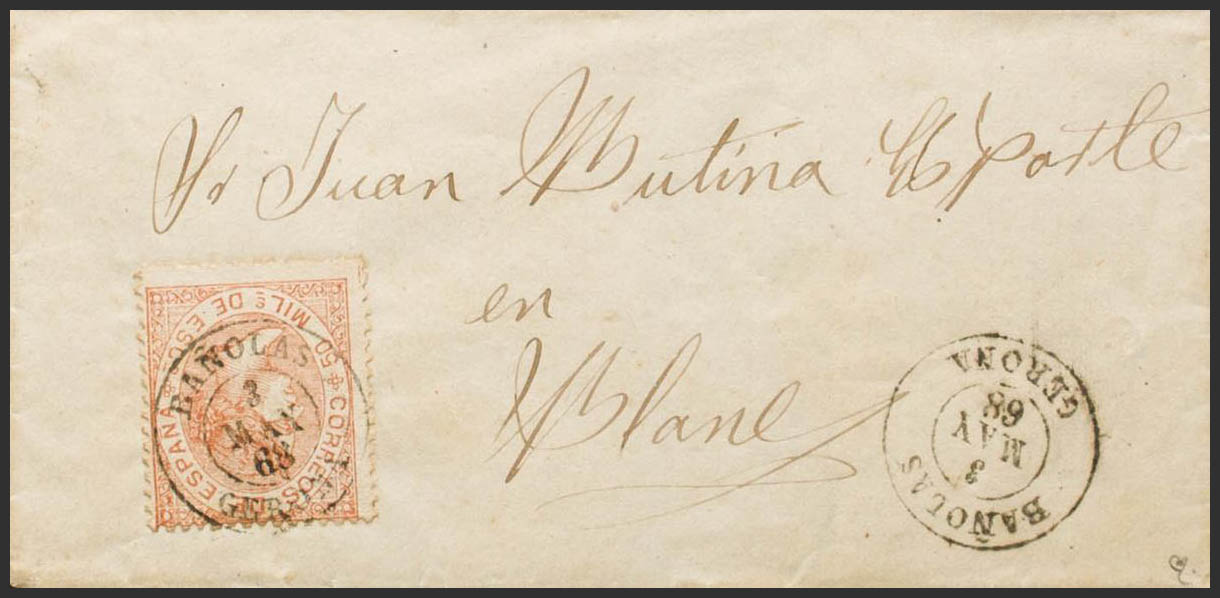 Sr Juan Mutina
en
Blanes
CORREOS ESPAÑA 50 MILs DE ESO
BAÑOLAS
3
MAY
68
GERONA
BAÑOLAS
3
MAY
68
GERONA